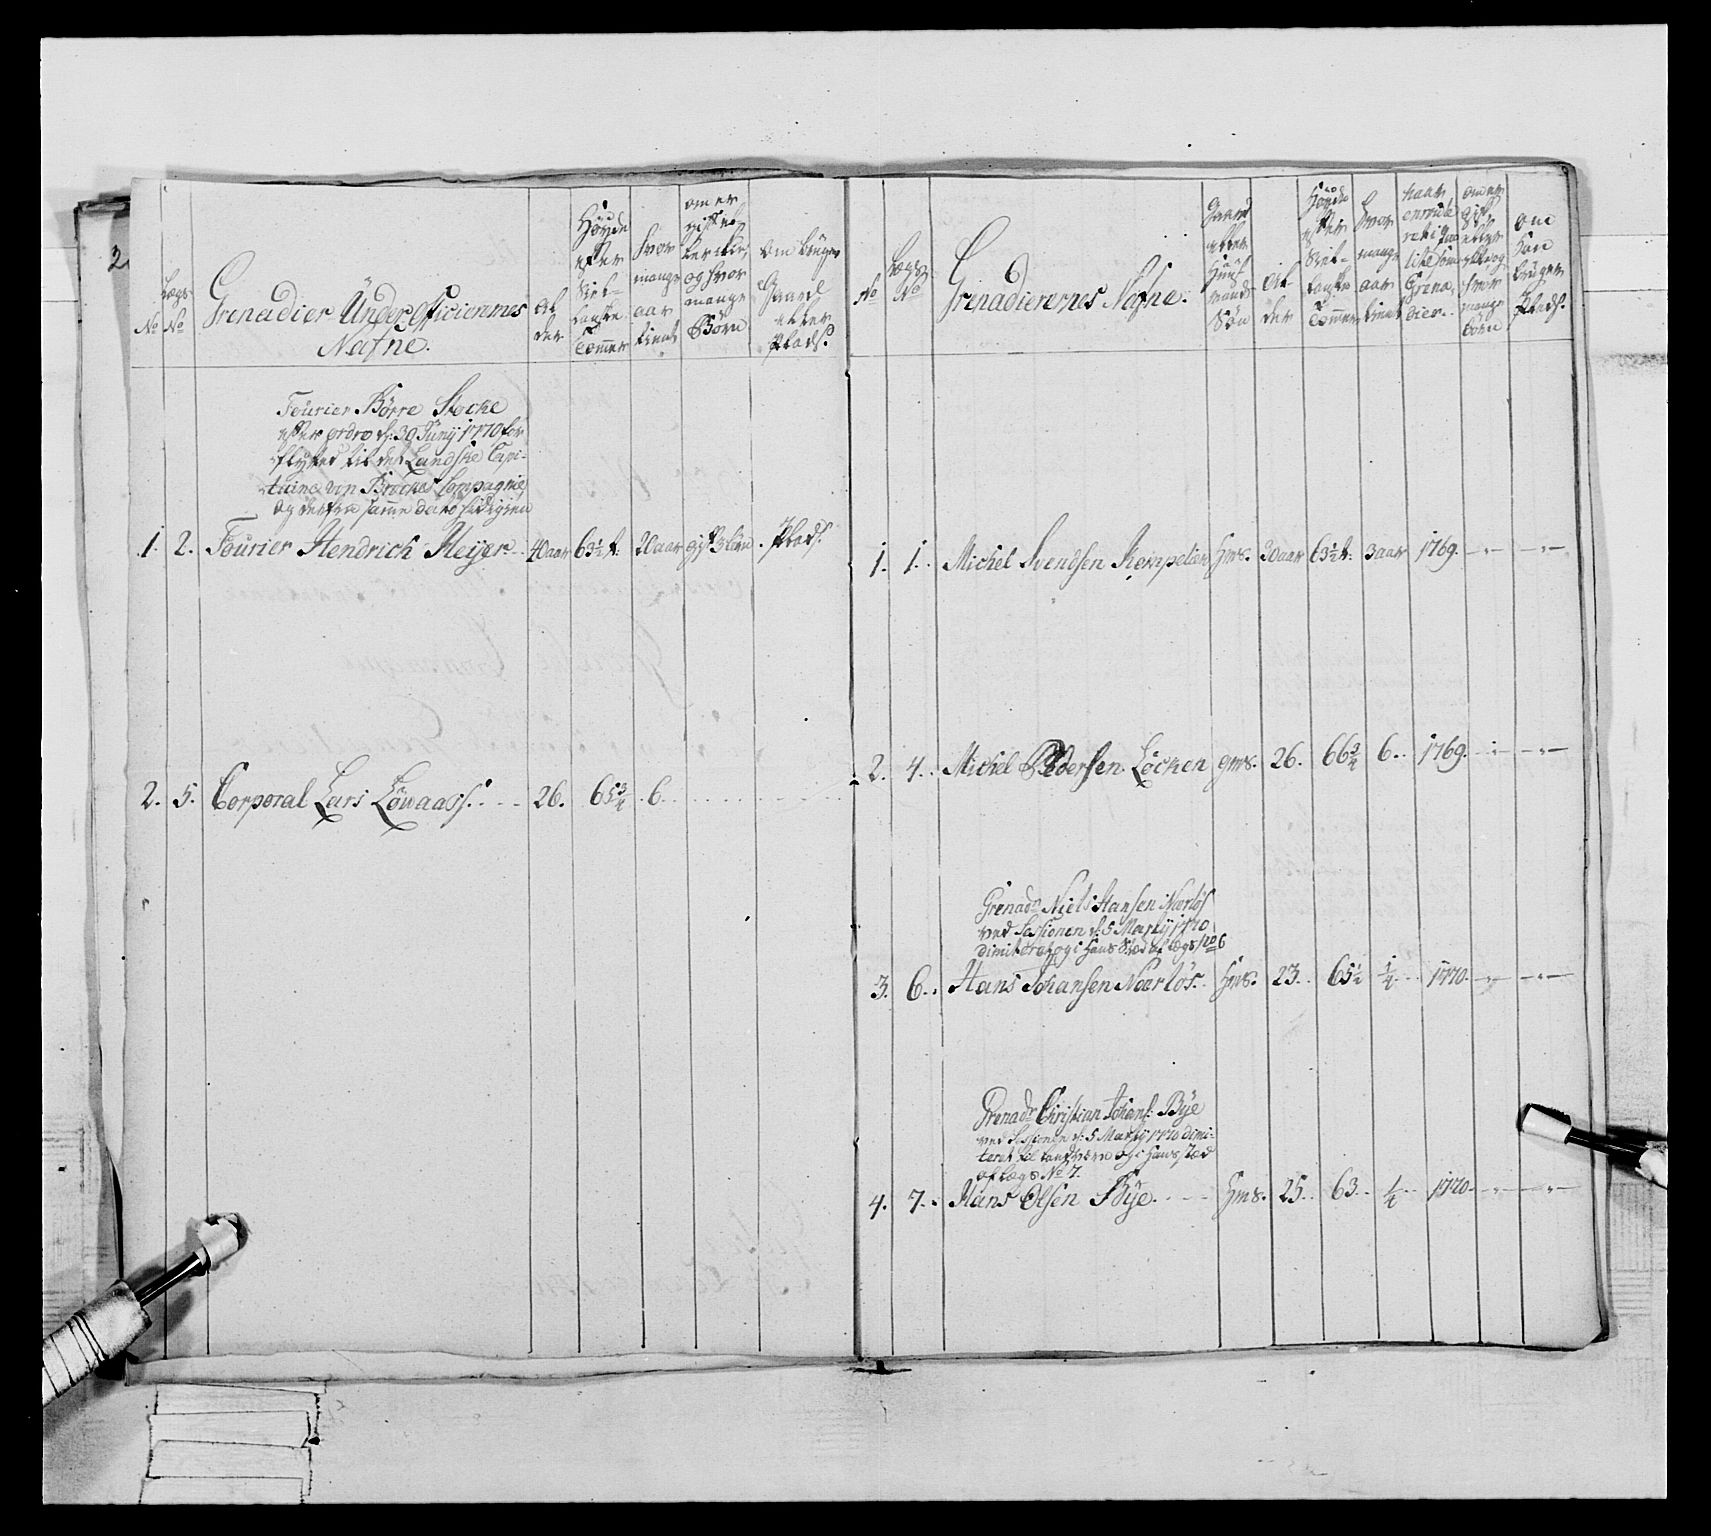 No
Lægs No
Grenadier Under Officierernes
Nafne.
Al
der
Høyde
efter
Siel-
landske
Tommer
hvor
mange
aar
tient
om er
gift el-
ler icke,
og hvor
mange
Børn
Om bruger
Gaard
eller
Plads.
Fourier Børre Stocke
efter ordre d: 30 Juny 1770 for
flytted til det Landske Capi-
taine von Brockes Compagnie,
og derfra samme dato hidigien
1. 2. Fourier Hendrich Heyer 40 aar 63½ t. 20 aar gift 3 børn. Plads.
2. 5. Corporal Lars Løvaass. 26. 65¾ 6.
No
Lægs
No
Grenadierernes Nafne.
Gaard
eller
Huus
mands
Søn
Al
der
Høyde
efter
Siel-
landske
Tommer
Hvor
mange
aar
tient
naar
enrulle
ret i Jus
liste som
Grena-
dier.
om er
Gift
eller
icke og
hvor
mange
børn
om
Han
bruger
Plads.
1. 1. Michel Svendsen Kempelien Hms. 30 aar 63½ t. 3 aar 1769.
2. 4. Michel Pedersen Løcken gms. 26. 66¾ 6. 1769.
Grenadr Niels Hansen Nærløs
ved Sessionen d: 5 Marty 1770
dimiteret og i Hans Stæd af Lægs No 6
3. 6. Hans Johansen Nærløs. Hms. 23. 65½ ¼ 1770.
Grenadr Christian Johans: Bye
ved Sessionen d: 5 Marty 1770 dimi-
teret til Landværn og i Hans stæd
af Lægs No 7.
4. 7. Hans Olsen Bye. Hms. 25. 63. ¼ 1770.